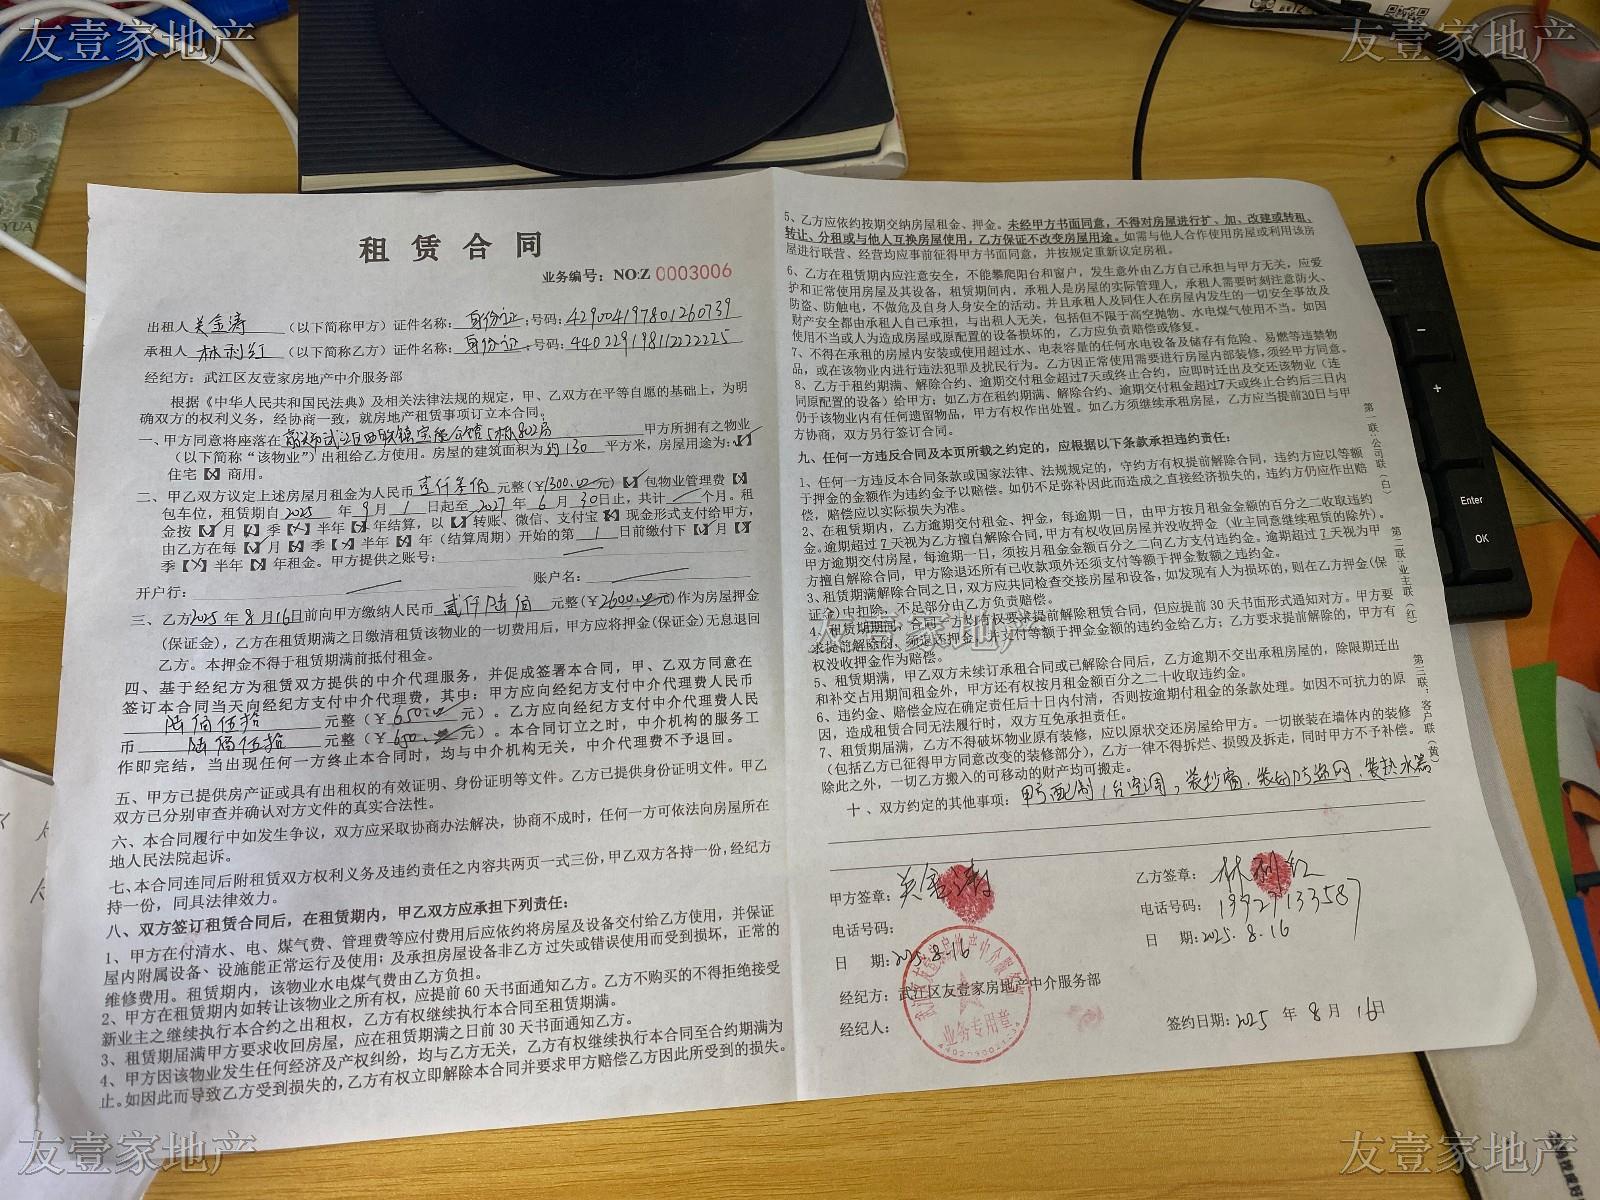 友壹家地产
友壹家地产
租 赁 合 同
业务编号：NO:Z 0003006
出租人 关金涛 （以下简称甲方）证件名称：身份证：号码：429004197801260739
承租人 林利红 （以下简称乙方）证件名称：身份证：号码：440229198112222225
经纪方：武江区友壹家房地产中介服务部
根据《中华人民共和国民法典》及相关法律法规的规定，甲、乙双方在平等自愿的基础上，为明
确双方的权利义务，经协商一致，就房地产租赁事项订立本合同。
一、甲方同意将座落在 韶关市武江区西联镇 5栋802房 甲方所拥有之物业
（以下简称“该物业”）出租给乙方使用。房屋的建筑面积为 约130 平方米，房屋用途为：【√】
住宅【×】商用。
二、甲乙双方议定上述房屋月租金为人民币 壹仟叁佰 元整（￥1300.00元）【√】包物业管理费【×】
包车位，租赁期自 2025 年 9 月 1 日起至 2027 年 6 月 30 日止，共计 个月。租
金按【√】月【×】季【×】半年【×】年结算，以【√】转账、微信、支付宝【×】现金形式支付给甲方，
由乙方在每【√】月【×】季【×】半年【×】年（结算周期）开始的第 1 日前缴付下【√】月【×】
季【×】半年【×】年租金。甲方提供之账号：
开户行： 账户名：
三、乙方2025年 8 月 16日前向甲方缴纳人民币 贰仟陆佰 元整（￥2600.00元）作为房屋押金
(保证金)，乙方在租赁期满之日缴清租赁该物业的一切费用后，甲方应将押金(保证金)无息退回
乙方。本押金不得于租赁期满前抵付租金。
四、基于经纪方为租赁双方提供的中介代理服务，并促成签署本合同，甲、乙双方同意在
签订本合同当天向经纪方支付中介代理费，其中：甲方应向经纪方支付中介代理费人民币
陆佰伍拾 元整（￥650.00 元）。乙方应向经纪方支付中介代理费人民
币 陆佰伍拾 元整（￥650.00 元）。本合同订立之时，中介机构的服务工
作即完结，当出现任何一方终止本合同时，均与中介机构无关，中介代理费不予退回。
五、甲方已提供房产证或具有出租权的有效证明、身份证明等文件。乙方已提供身份证明文件。甲乙
双方已分别审查并确认对方文件的真实合法性。
六、本合同履行中如发生争议，双方应采取协商办法解决，协商不成时，任何一方可依法向房屋所在
地人民法院起诉。
七、本合同连同后附租赁双方权利义务及违约责任之内容共两页一式三份，甲乙双方各持一份，经纪方
持一份，同具法律效力。
八、双方签订租赁合同后，在租赁期内，甲乙双方应承担下列责任：
1、甲方在付清水、电、煤气费、管理费等应付费用后应依约将房屋及设备交付给乙方使用，并保证
屋内附属设备、设施能正常运行及使用；及承担房屋设备非乙方过失或错误使用而受到损坏，正常的
维修费用。租赁期内，该物业水电煤气费由乙方负担。
2、甲方在租赁期内如转让该物业之所有权，应提前 60 天书面通知乙方。乙方不购买的不得拒绝接受
新业主之继续执行本合约之出租权，乙方有权继续执行本合同至租赁期满。
3、租赁期届满甲方要求收回房屋，应在租赁期满之日前 30 天书面通知乙方。
4、甲方因该物业发生任何经济及产权纠纷，均与乙方无关，乙方有权继续执行本合同至合约期满为
止。如因此而导致乙方受到损失的，乙方有权立即解除本合同并要求甲方赔偿乙方因此所受到的损失。
5、乙方应依约按期交纳房屋租金、押金。未经甲方书面同意，不得对房屋进行扩、加、改建或转租、
转让、分租或与他人互换房屋使用，乙方保证不改变房屋用途。如需与他人合作使用房屋或利用该房
屋进行联营、经营均应事前征得甲方书面同意，并按规定重新议定房租。
6、乙方在租赁期内应注意安全，不能攀爬阳台和窗户，发生意外由乙方自己承担与甲方无关，应爱
护和正常使用房屋及其设备，租赁期间内，承租人是房屋的实际管理人，承租人需要时刻注意防火、
防盗、防触电，不做危及自身人身安全的活动。并且承租人及同住人在房屋内发生的一切安全事故及
财产安全都由承租人自己承担，与出租人无关，包括但不限于高空抛物、水电煤气使用不当。如因
使用不当或人为造成房屋或原配置的设备损坏的，乙方应负责赔偿或修复。
7、不得在承租的房屋内安装或使用超过水、电表容量的任何水电设备及储存有危险、易燃等违禁物
品，或在该物业内进行违法犯罪及扰民行为。乙方因正常使用需要进行房屋内部装修，须经甲方同意。
8、乙方于租约期满、解除合约、逾期交付租金超过7天或终止合约，应即时迁出及交还该物业（连
同原配置的设备）给甲方；如乙方在租约期满、解除合约、逾期交付租金超过7天或终止合约后三日内
仍于该物业内有任何遗留物品，甲方有权作出处置。如乙方须继续承租房屋，乙方应当提前30日与甲
方协商，双方另行签订合同。
九、任何一方违反合同及本页所载之约定的，应根据以下条款承担违约责任：
1、任何一方违反本合同条款或国家法律、法规规定的，守约方有权提前解除合同，违约方应以等额
于押金的金额作为违约金予以赔偿。如仍不足弥补因此而造成之直接经济损失的，违约方仍应作出赔
偿，赔偿应以实际损失为准。
2、在租赁期内，乙方逾期交付租金、押金，每逾期一日，由甲方按月租金金额的百分之二收取违约
金。逾期超过 7 天视为乙方擅自解除合同，甲方有权收回房屋并没收押金（业主同意继续租赁的除外）。
甲方逾期交付房屋，每逾期一日，须按月租金金额百分之二向乙方支付违约金。逾期超过 7 天视为甲
方擅自解除合同，甲方除退还所有已收款项外还须支付等额于押金数额之违约金。
3、租赁期满解除合同之日，双方应共同检查交接房屋和设备，如发现有人为损坏的，则在乙方押金(保
证金)中扣除，不足部分由乙方负责赔偿。
友壹家地产
4、租赁期期间，合同一方均有权要求提前解除租赁合同，但应提前 30 天书面形式通知对方。甲方要
求提前解除的，须退还押金，并支付等额于押金金额的违约金给乙方；乙方要求提前解除的，甲方有
权没收押金作为赔偿。
5、租赁期满，甲乙双方未续订承租合同或已解除合同后，乙方逾期不交出承租房屋的，除限期迁出
和补交占用期间租金外，甲方还有权按月租金额百分之二十收取违约金。
6、违约金、赔偿金应在确定责任后十日内付清，否则按逾期付租金的条款处理。如因不可抗力的原
因，造成租赁合同无法履行时，双方互免承担责任。
7、租赁期届满，乙方不得破坏物业原有装修，应以原状交还房屋给甲方。一切嵌装在墙体内的装修
（包括乙方已征得甲方同意改变的装修部分），乙方一律不得拆烂、损毁及拆走，同时甲方不予补偿。
除此之外，一切乙方搬入的可移动的财产均可搬走。
十、双方约定的其他事项：甲方配制1台空调，装纱窗、装 防盗网、装热水器
第一联：公司联（白）
第二联：业主联（红）
第三联：客户联（黄）
甲方签章：关金涛
乙方签章：林利红
电话号码：
电话号码：19927133587
日 期：2025.8.16
日 期：2025.8.16
经纪方：武江区友壹家房地产中介服务部
经纪人：
签约日期：2025 年 8 月 16日
武江区友壹家房地产中介服务部
业务专用章
Enter
OK
YUA
友壹家地产
友壹家地产